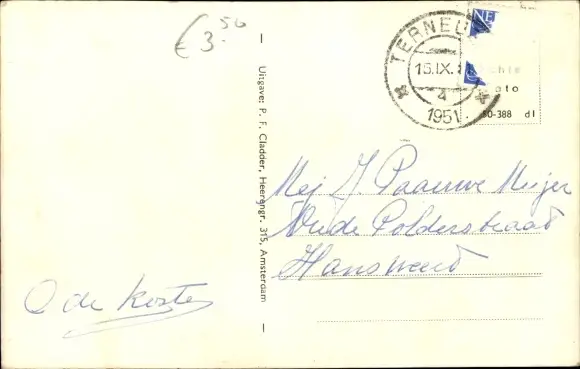 € 3.50
TERNEU
15.IX.
4
1951
NE
chte
oto
60-388 dl
Uitgave: P. F. Cladder, Heerengr. 315, Amsterdam
Mej J. Paauwe Meijer
Oude Polderstraat
Hansweert
O de Koster